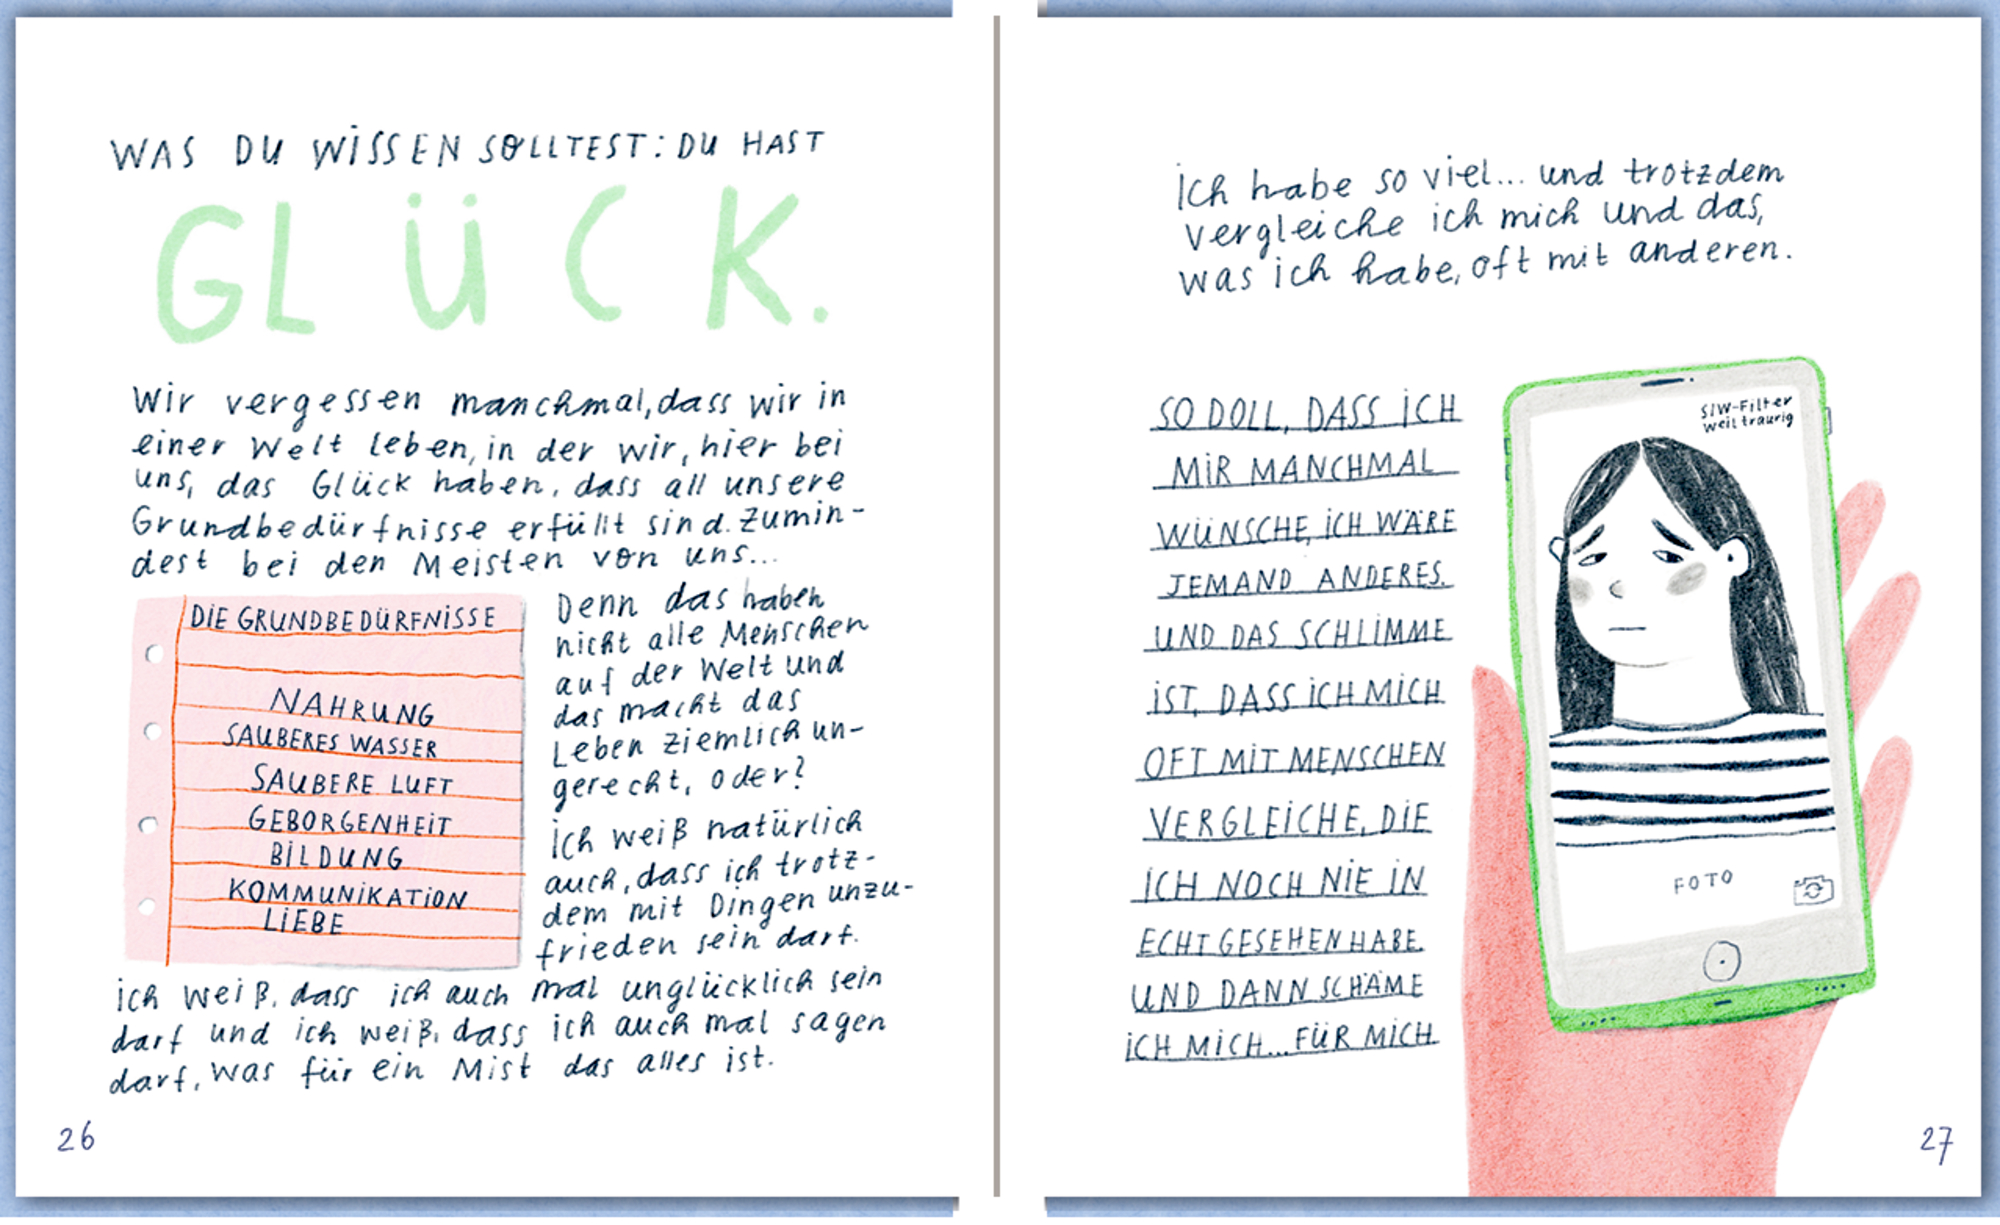 WAS DU WiSSEN SOLLTEST: DU HAST
GLÜCK.
Wir vergessen manchmal, dass wir in
einer Welt leben, in der wir, hier bei
uns, das Glück haben, dass all unsere
Grundbedürfnisse erfüllt sind. Zumin-
dest bei den Meisten von uns...
DiE GRUNDBEDÜRFNiSSE
NAHRUNG
SAUBERES WASSER
SAUBERE LUFT
GEBORGENHEiT
BiLDUNG
KOMMUNiKATiON
LiEBE
Denn das haben
nicht alle Menschen
auf der Welt und
das macht das
Leben ziemlich un-
gerecht, oder?
ich weiß natürlich
auch, dass ich trotz-
dem mit Dingen unzu-
frieden sein darf.
ich weiß, dass ich auch mal unglücklich sein
darf und ich weiß, dass ich auch mal sagen
darf, was für ein Mist das alles ist.
26
ich habe so viel... und trotzdem
vergleiche ich mich und das,
was ich habe, oft mit anderen.
SO DOLL, DASS iCH
MiR MANCHMAL
WÜNSCHE, iCH WÄRE
JEMAND ANDERES.
UND DAS SCHLiMME
iST, DASS iCH MiCH
OFT MiT MENSCHEN
VERGLEiCHE, DiE
iCH NOCH NiE iN
ECHT GESEHEN HABE.
UND DANN SCHÄME
iCH MiCH... FÜR MiCH.
S/W-Filter
weil traurig
FOTO
27